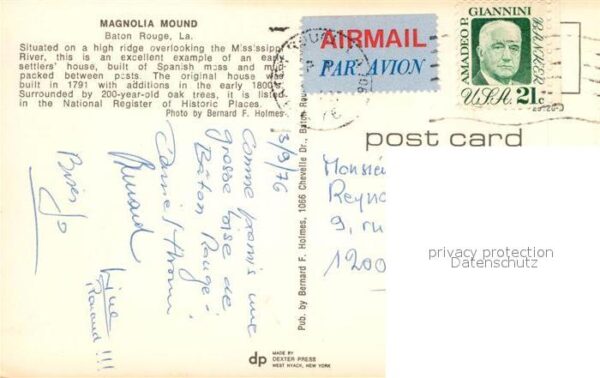 MAGNOLIA MOUND
Baton Rouge, La.
Situated on a high ridge overlooking the Mississippi
River, this is an excellent example of an early
settlers' house, built of Spanish moss and mud
packed between posts. The original house was
built in 1791 with additions in the early 1800's.
Surrounded by 200-year-old oak trees, it is listed
in the National Register of Historic Places.
Photo by Bernard F. Holmes.
3/9/76
Comme promis une
grosse bise de
Bâton Rouge!
Renaud
Bises
Jo
Renaud !!!
Pub. by Bernard F. Holmes, 1066 Chevelle Dr., Baton Rou
dp
MADE BY
DEXTER PRESS
WEST NYACK, NEW YORK
AIRMAIL
PAR AVION
AMADEO P. GIANNINI
BANKER
U.S.A. 21c
post card
Monsie
Reyn
9, ru
1200
privacy protection
Datenschutz